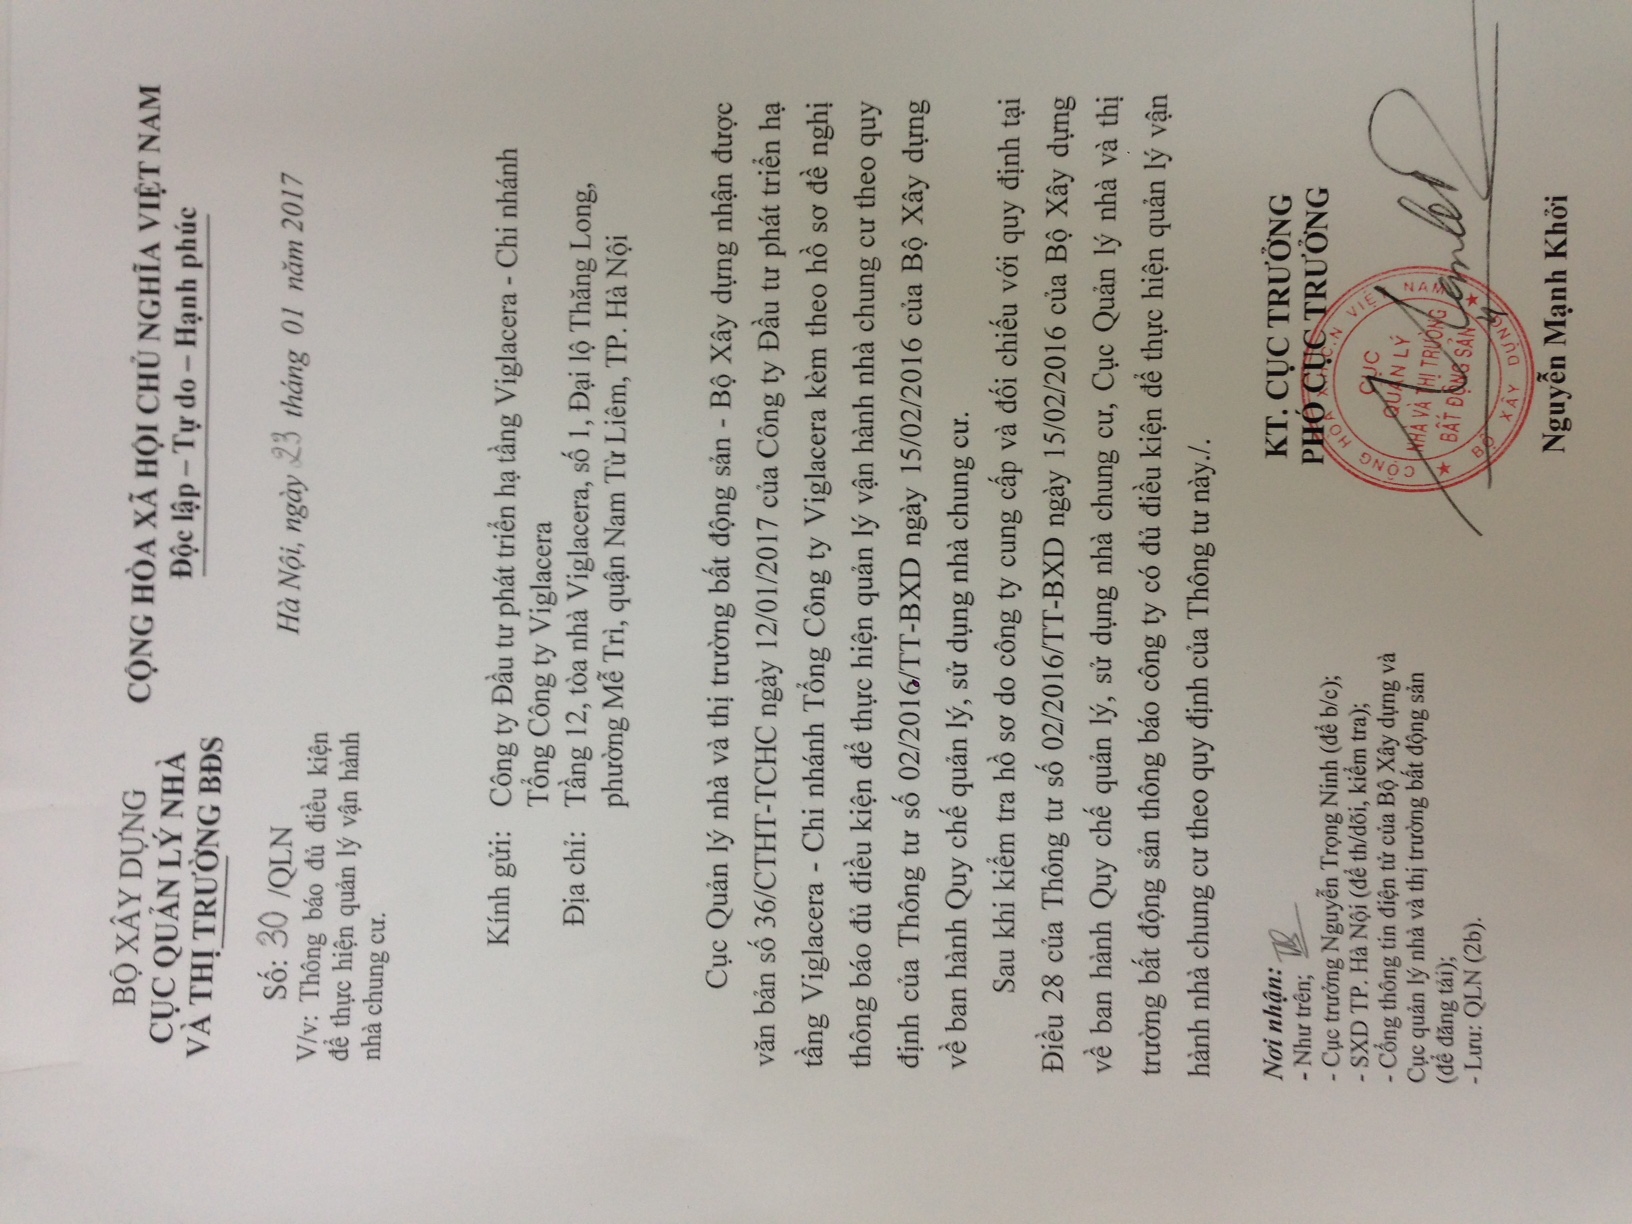 BỘ XÂY DỰNG
CỤC QUẢN LÝ NHÀ
VÀ THỊ TRƯỜNG BĐS
CỘNG HÒA XÃ HỘI CHỦ NGHĨA VIỆT NAM
Độc lập – Tự do – Hạnh phúc
Số: 30 /QLN
V/v: Thông báo đủ điều kiện
để thực hiện quản lý vận hành
nhà chung cư.
Hà Nội, ngày 23 tháng 01 năm 2017
Kính gửi: Công ty Đầu tư phát triển hạ tầng Viglacera - Chi nhánh
Tổng Công ty Viglacera
Địa chỉ: Tầng 12, tòa nhà Viglacera, số 1, Đại lộ Thăng Long,
phường Mễ Trì, quận Nam Từ Liêm, TP. Hà Nội
Cục Quản lý nhà và thị trường bất động sản - Bộ Xây dựng nhận được
văn bản số 36/CTHT-TCHC ngày 12/01/2017 của Công ty Đầu tư phát triển hạ
tầng Viglacera - Chi nhánh Tổng Công ty Viglacera kèm theo hồ sơ đề nghị
thông báo đủ điều kiện để thực hiện quản lý vận hành nhà chung cư theo quy
định của Thông tư số 02/2016/TT-BXD ngày 15/02/2016 của Bộ Xây dựng
về ban hành Quy chế quản lý, sử dụng nhà chung cư.
Sau khi kiểm tra hồ sơ do công ty cung cấp và đối chiếu với quy định tại
Điều 28 của Thông tư số 02/2016/TT-BXD ngày 15/02/2016 của Bộ Xây dựng
về ban hành Quy chế quản lý, sử dụng nhà chung cư, Cục Quản lý nhà và thị
trường bất động sản thông báo công ty có đủ điều kiện để thực hiện quản lý vận
hành nhà chung cư theo quy định của Thông tư này./.
Nơi nhận:
- Như trên;
- Cục trưởng Nguyễn Trọng Ninh (để b/c);
- SXD TP. Hà Nội (để th/dõi, kiểm tra);
- Cổng thông tin điện tử của Bộ Xây dựng và
Cục quản lý nhà và thị trường bất động sản
(để đăng tải);
- Lưu: QLN (2b).
KT. CỤC TRƯỞNG
PHÓ CỤC TRƯỞNG
CỘNG HÒA X.H.C.N VIỆT NAM
CỤC
QUẢN LÝ
NHÀ VÀ THỊ TRƯỜNG
BẤT ĐỘNG SẢN
BỘ XÂY DỰNG
Nguyễn Mạnh Khởi